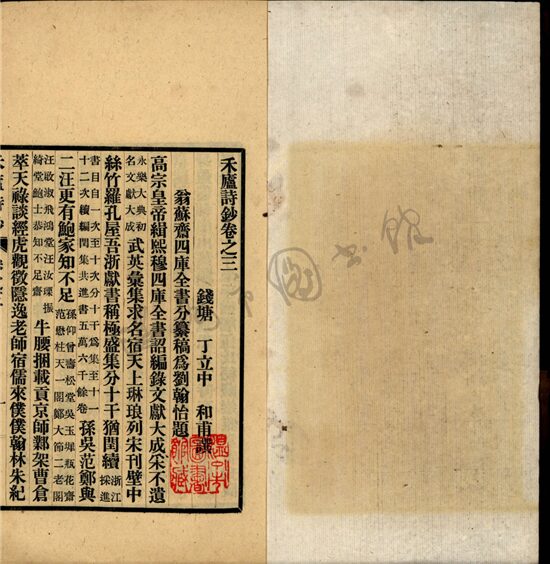 禾廬詩鈔卷之三
錢塘 丁立中 和甫譔
翁蘇齋四庫全書分纂稿為劉翰怡題
高宗皇帝緝熙穆四庫全書詔編錄文獻大成宋不遺
永樂大典初名文獻大成 武英彙集求名宿天上琳琅列宋刊壁中
絲竹羅孔屋吾浙獻書稱極盛集分十干猶閏續 浙江採進
書目自一次至十次分十干為集至十一十二次續編閏集共進書五萬六千餘卷 孫吳范鄭與
二汪更有鮑家知不足 孫仰曾壽松堂吳玉墀瓶花齋范懋柱天一閣鄭大節二老閣
汪啟淑飛鴻堂汪汝瑮振綺堂鮑士恭知不足齋 牛腰捆載貢京師鄴架曹倉
萃天祿談經虎觀徵隱逸老師宿儒來僕僕翰林朱紀